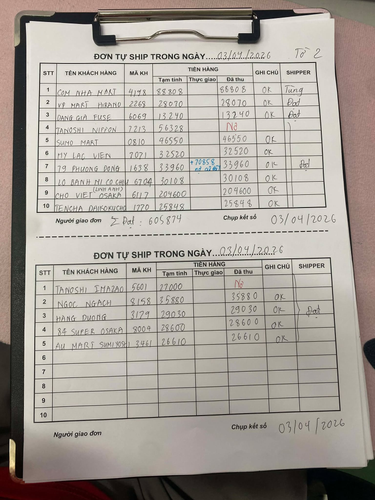 ĐƠN TỰ SHIP TRONG NGÀY 03/04/2026 Tờ 2
STT TÊN KHÁCH HÀNG MÃ KH TIỀN HÀNG GHI CHÚ SHIPPER
Tạm tính Thực giao Đã thu
1 COM NHA MART 4198 88808 88808 OK Tùng
2 VP MART HIRANO 2268 28070 28070 OK Đạt
3 DANG GIA FUSE 6069 13240 13240 OK Đạt
4 TANOSHI NIPPON 7213 56328 Nợ
5 SUMO MART 0810 46550 46550 OK
6 MY LAC VIEN 7071 32520 32520 OK
7 79 PHUONG DONG 1638 33960 33960 OK Đạt
8 LO BANH MI CO CHU 6704 30108 30108 OK
9 CHO VIET OSAKA 6117 204600 204600 OK
10 TENCHA DAIKOKUCHO 1770 25848 25848 OK
Người giao đơn Σ Đạt : 605874 Chụp kết sổ 03/04/2026
ĐƠN TỰ SHIP TRONG NGÀY 03/04/2026
STT TÊN KHÁCH HÀNG MÃ KH TIỀN HÀNG GHI CHÚ SHIPPER
Tạm tính Thực giao Đã thu
1 TANOSHI IMAZAO 5601 27000 Nợ
2 NGOC NGACH 8158 35880 35880 OK
3 HANG DUONG 3179 29030 29030 OK Đạt
4 84 SUPER OSAKA 8004 28600 28600 OK
5 AU MART SUMIYOSHI 3461 26610 26610 OK
6
7
8
9
10
Người giao đơn Chụp kết sổ 03/04/2026